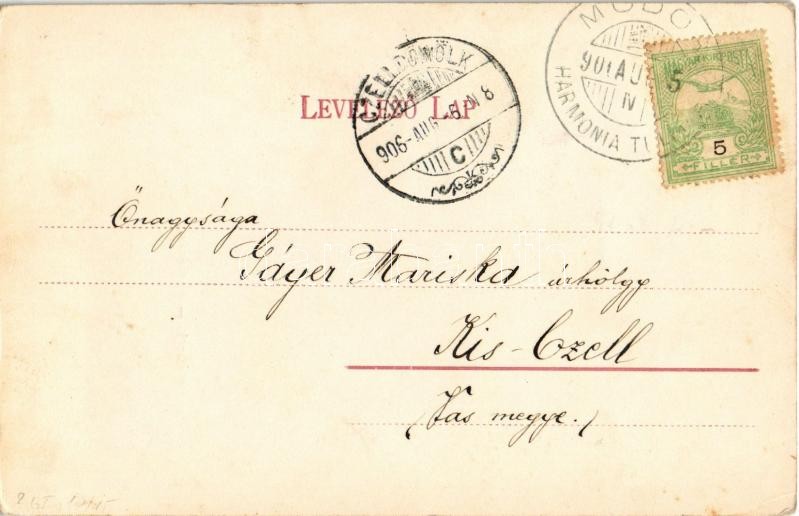 MODO
901 AU
IV
HARMONIA TU
CZELLDÖMÖLK
906-AUG-6-N8
C
MAGYAR KIR. POSTA
5
5
FILLÉR
LEVELEZŐ LAP
Őnagysága
Gáyer Mariska úrhölgy
Kis-Czell
(Vas megye.)